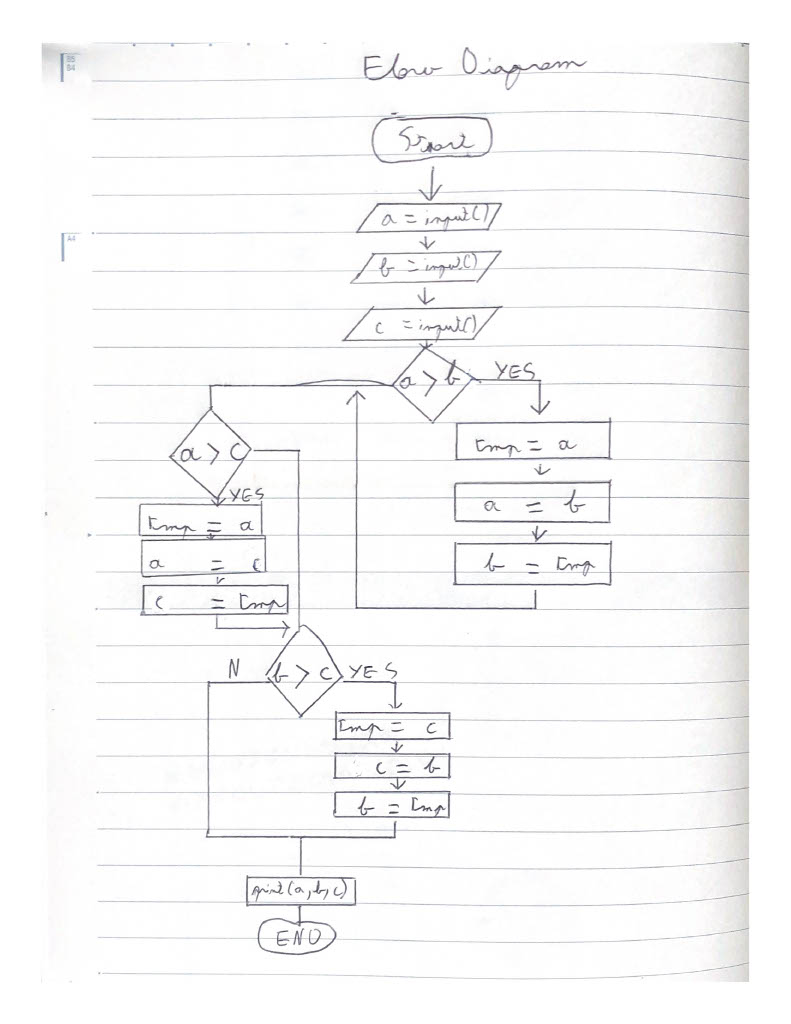 B5
B4
Flow Diagram
Start
a = input()
A4
b = input()
c = input()
a > b YES
a > c
tmp = a
a = b
YES
tmp = a
a = c
b = tmp
c = tmp
N b > c YES
tmp = c
c = b
b = tmp
print(a,b,c)
END